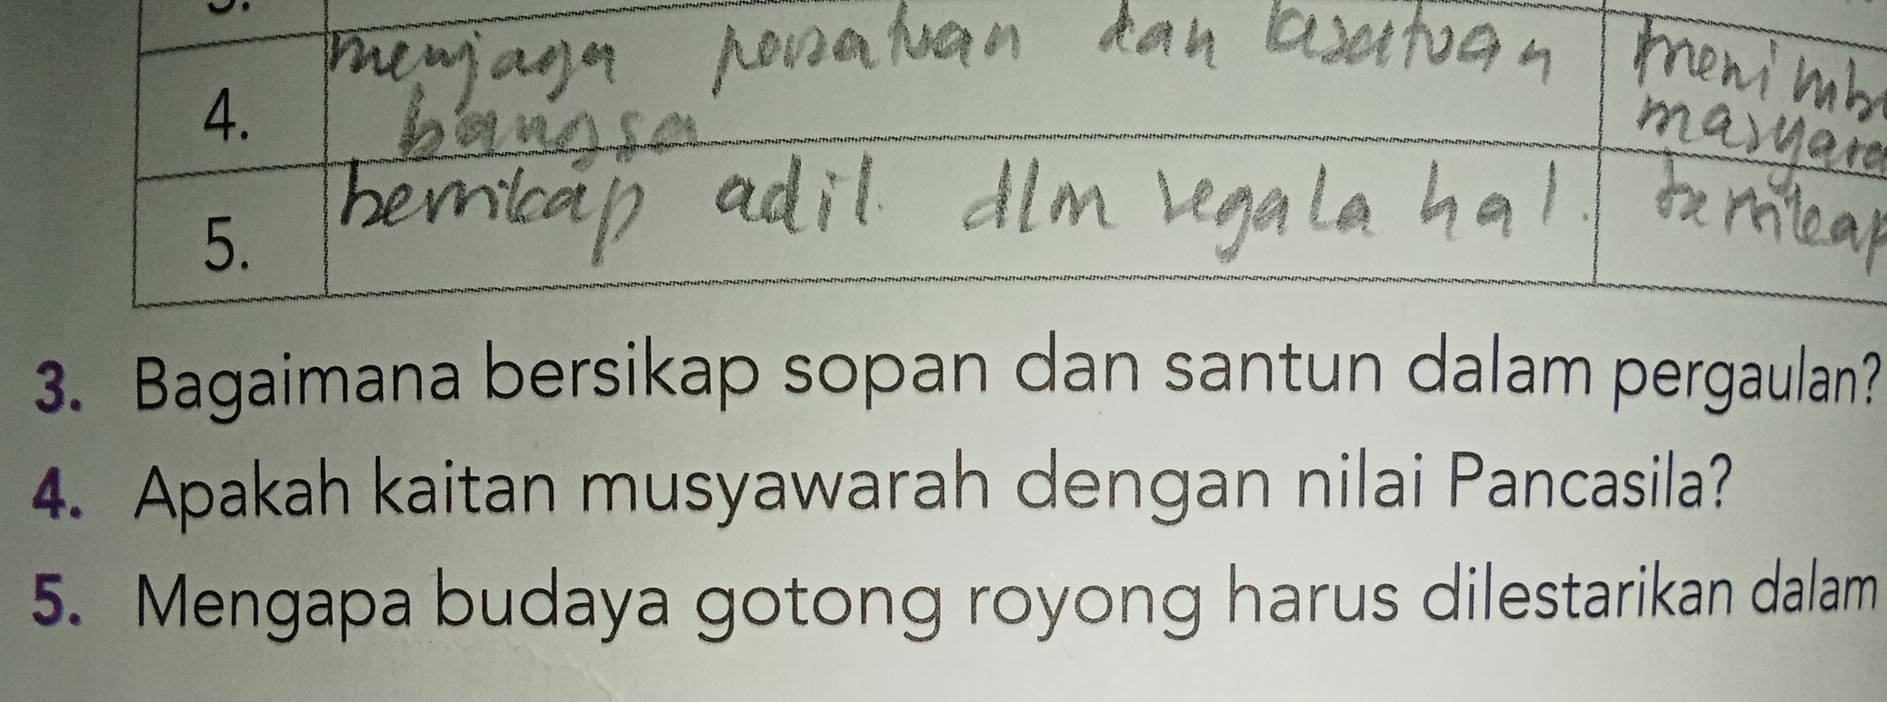 4. menjaga persatuan dan kesatuan bangsa
5. bersikap adil dlm segala hal.
3. Bagaimana bersikap sopan dan santun dalam pergaulan?
4. Apakah kaitan musyawarah dengan nilai Pancasila?
5. Mengapa budaya gotong royong harus dilestarikan dalam